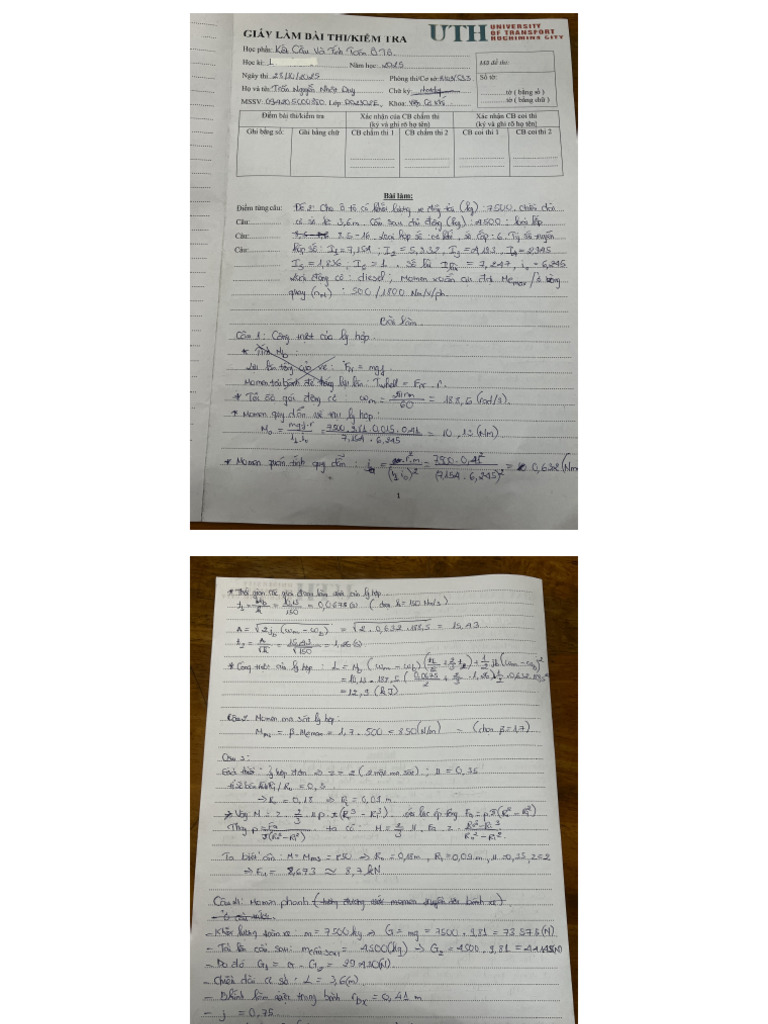 GIẤY LÀM BÀI THI/KIỂM TRA
UTH UNIVERSITY OF TRANSPORT HOCHIMINH CITY
Học phần: Kết Cấu Và Tính Toán ÔTÔ.
Học kì: 1 Năm học: 2025
Mã đề thi:
Ngày thi 25/10/2025 Phòng thi/Cơ sở:
Số tờ:
Họ và tên: Trần Nguyễn Duy Chữ ký
tờ ( bằng số )
MSSV: Lớp Khoa:
tờ ( bằng chữ )
Điểm bài thi/kiểm tra
Xác nhận của CB chấm thi
(ký và ghi rõ họ tên)
Xác nhận CB coi thi
(ký và ghi rõ họ tên)
Ghi bằng số: Ghi bằng chữ CB chấm thi 1 CB chấm thi 2 CB coi thi 1 CB coi thi 2
Bài làm:
Điểm từng câu: Đề 2: Cho ô tô có khối lượng xe đầy tải (kg): 7500. Chiều dài
Câu: cơ sở là: 3,6m. Cầu sau chủ động (kg): 4500; loại lốp
Câu: 8.5-16. Loại hộp số: cơ khí, số cấp: 6. Tỷ số truyền
Câu: hộp số: I1=7,154; I2=5,332, I3=
I5=1,636; I6=1. Số lùi = 7,247, io=6,245
động cơ: diesel; Momen xoắn cực đại Memax/số vòng
quay (nM): 500/1800 Nm/v/ph.
Bài làm.
Câu 1: Công trượt của ly hợp.
* Tính Mb:
cản vào xe: = mgf
Momen tới bánh để thắng lực lăn: Twheel = . r.
* Tốc độ góc động cơ: ωm = 2πnM/60 = 188,5 (rad/s).
* Momen quy dẫn về trục ly hợp:
Mb = mgf.r/i1.io = 7500.9,81.0,015.0,41/7,154.6,245 = 10,13 (Nm)
* Momen quán tính quy dẫn: = r².m/(i1 io)² = 7500.0,41²/(7,154.6,245)² = 0,632 (Nm
1
* Thời gian các giai đoạn làm việc của ly hợp
t1 = Mb/k = 10,13/150 = 0,0675(s) (chọn k=150 Nm/s)
A = √2Jb(ωm-ωb) = √2.0,632.188,5 = 15,43
t2 = A/√k = 15,43/√150 = 1,26(s)
* Công trượt của ly hợp: L = Mb(ωm-ωb)(t1/2+2/3 t2)+1/2 Jb(ωm-ωb)²
= 12,9 (kJ)
Câu 2. Momen ma sát ly hợp:
Mms = β.Memax = 1,7.500 = 850(Nm) (chọn β=1,7)
Câu 3:
Giả thiết: ly hợp đơn => z=2 (2 mặt ma sát); μ=0,35
tỉ số bán kính Ri/Ro = 0,5
=> Ro = 0,18 => Ri = 0,09 m
-> Vậy: M = z.2/3 μ.p.π(Ro³-Ri³). lực ép tổng Fa=p.π(Ro²-Ri²)
Thay p=Fa/π(Ro²-Ri²) ta có: M=2/3 μ.Fa.z.(Ro³-Ri³)/(Ro²-Ri²)
Ta biết cần: M=Mms=850 => Ro=0,18m, Ri=0,09m, μ=0,35, z=2
=> Fa = 8,673 ≈ 8,7kN
Câu 4: Momen phanh
- Khối lượng toàn xe: m=7500kg => G=mg=7500.9,81=73575(N)
- Tải lên cầu sau: = 4500(kg) => G2=4500.9,81=44145(N)
- Do đó G1=G-G2=29430(N).
- Chiều dài cơ sở: L=3,6(m).
- Bánh = 0,41 m
- j = 0,75